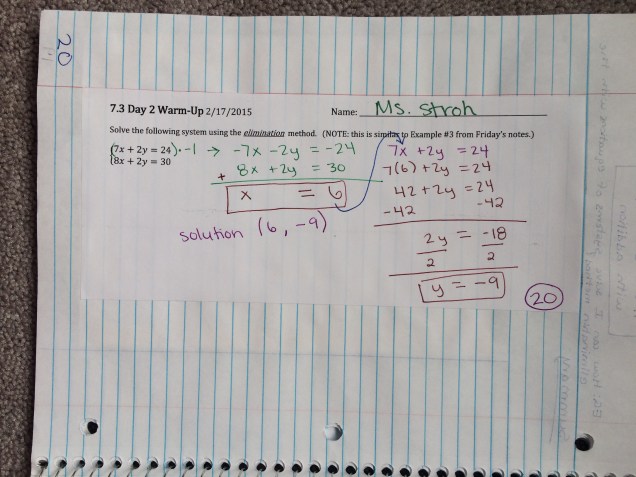 20
7.3 Day 2 Warm-Up 2/17/2015 Name: Ms. Stroh
Solve the following system using the elimination method. (NOTE: this is similar to Example #3 from Friday's notes.)
(7x + 2y = 24)·-1 → -7x -2y = -24
8x + 2y = 30
+ 8x +2y = 30
x = 6
solution (6, -9)
7x +2y =24
7(6) +2y =24
42 +2y =24
-42 -42
2y = -18
2 2
y = -9
20